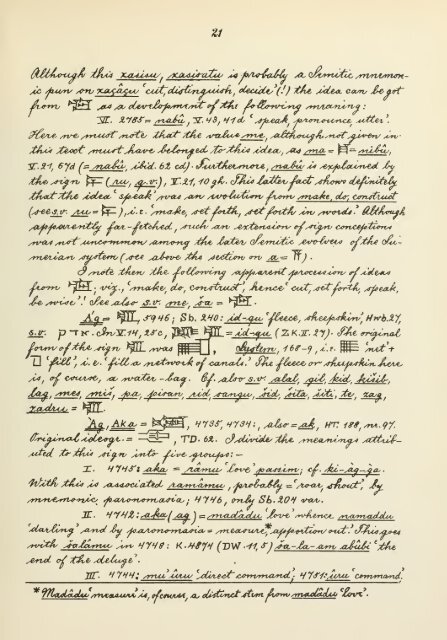 21
Although this xasisu, xasisatu is probably a Semitic mnemon-
ic pun on xaçâçu 'cut, distinguish, decide' (!) the idea can be got
from as a development of the following meaning:
VI. 2785 = nabû, V. 43, 41d 'speak, pronounce, utter'.
Here we must note that the value me, although not given in
this text must have belonged to this idea, as ma = = nibû,
V. 21, 57d (= nabû, ibid. 62 cd). Furthermore, nabû is explained by
the sign (ru, q.v.), V. 21, 10 gh. This latter fact shows definitely
that the idea 'speak' was an evolution from make, do, construct
(see s.v. ru = ), i.e. make, set forth, set forth in words.' Although
apparently far-fetched, such an extension of sign conceptions
was not uncommon among the later Semitic evolvers of the Su-
merian system (see above the section on a = ).
I note then the following apparent procession of ideas
from ; viz., 'make, do, construct', hence 'cut, set forth, speak,
be wise'.! See also s.v. me, ša = .
Ag = , 5946; Sb. 240: id-gu 'fleece, sheepskin', Hwb. 27,
s.v. . In V. 14, 28c, = id-qu (Z.K. II. 27). The original
form of the sign was , System, 168-9, i.e. 'net' +
'fill', i.e. 'fill a network of canals'. The fleece or sheepskin here
is, of course, a water-bag. Cf. also s.v. alal, gil, kid, kišib,
lag, mes, mis, pa, pisan, rid, sangu, šid, šita, šiti, te, zag,
zadru = .
Ag, Aka = , 4735, 4734:, also = ak, HT. 188, nr. 97.
Original ideogr. = , TD. 62. I divide the meanings attrib-
uted to this sign into five groups:—
I. 4745: aka = râmu 'love' passim; cf. ki-àg-ga.
With this is associated ramâmu, probably = 'roar, shout', by
mnemonic paronomasia; 4746, only Sb. 204 var.
II. 4742: aka (ag) = madâdu 'love' whence namaddu
'darling' and by paronomasia = measure,* apportion out.' This goes
with šalâmu in 4748: K. 4874 (DW. 11, 5) ša-la-am abûbi 'the
end of the deluge'.
III. 4744: mu'üru 'direct command'; 4751: ûru 'command.'
* Madâdu 'measure' is, of course, a distinct stem from madâdu 'love'.